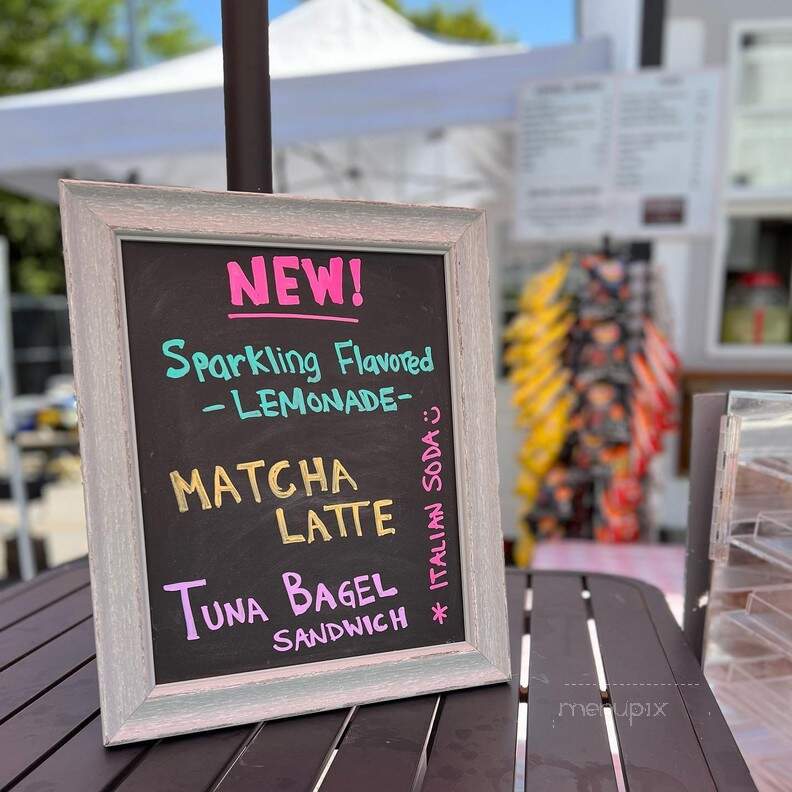 NEW!
Sparkling Flavored
-LEMONADE-
MATCHA
LATTE
TUNA BAGEL
SANDWICH
* ITALIAN SODA
menupix